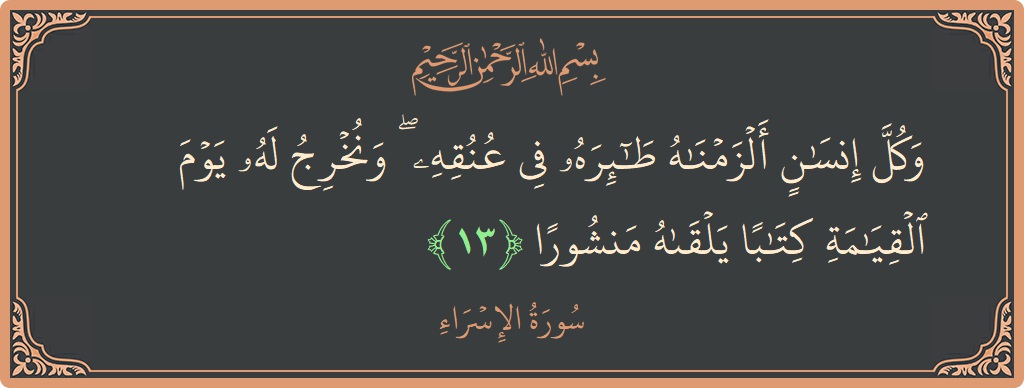 بِسْمِ اللَّهِ الرَّحْمَٰنِ الرَّحِيمِ
وَكُلَّ إِنسَـٰنٍ أَلْزَمْنَـٰهُ طَـٰٓئِرَهُۥ فِى عُنُقِهِۦ ۖ وَنُخْرِجُ لَهُۥ يَوْمَ
ٱلْقِيَـٰمَةِ كِتَـٰبًا يَلْقَىٰهُ مَنشُورًا ﴿١٣﴾
سُورَةُ الإِسْرَاءِ